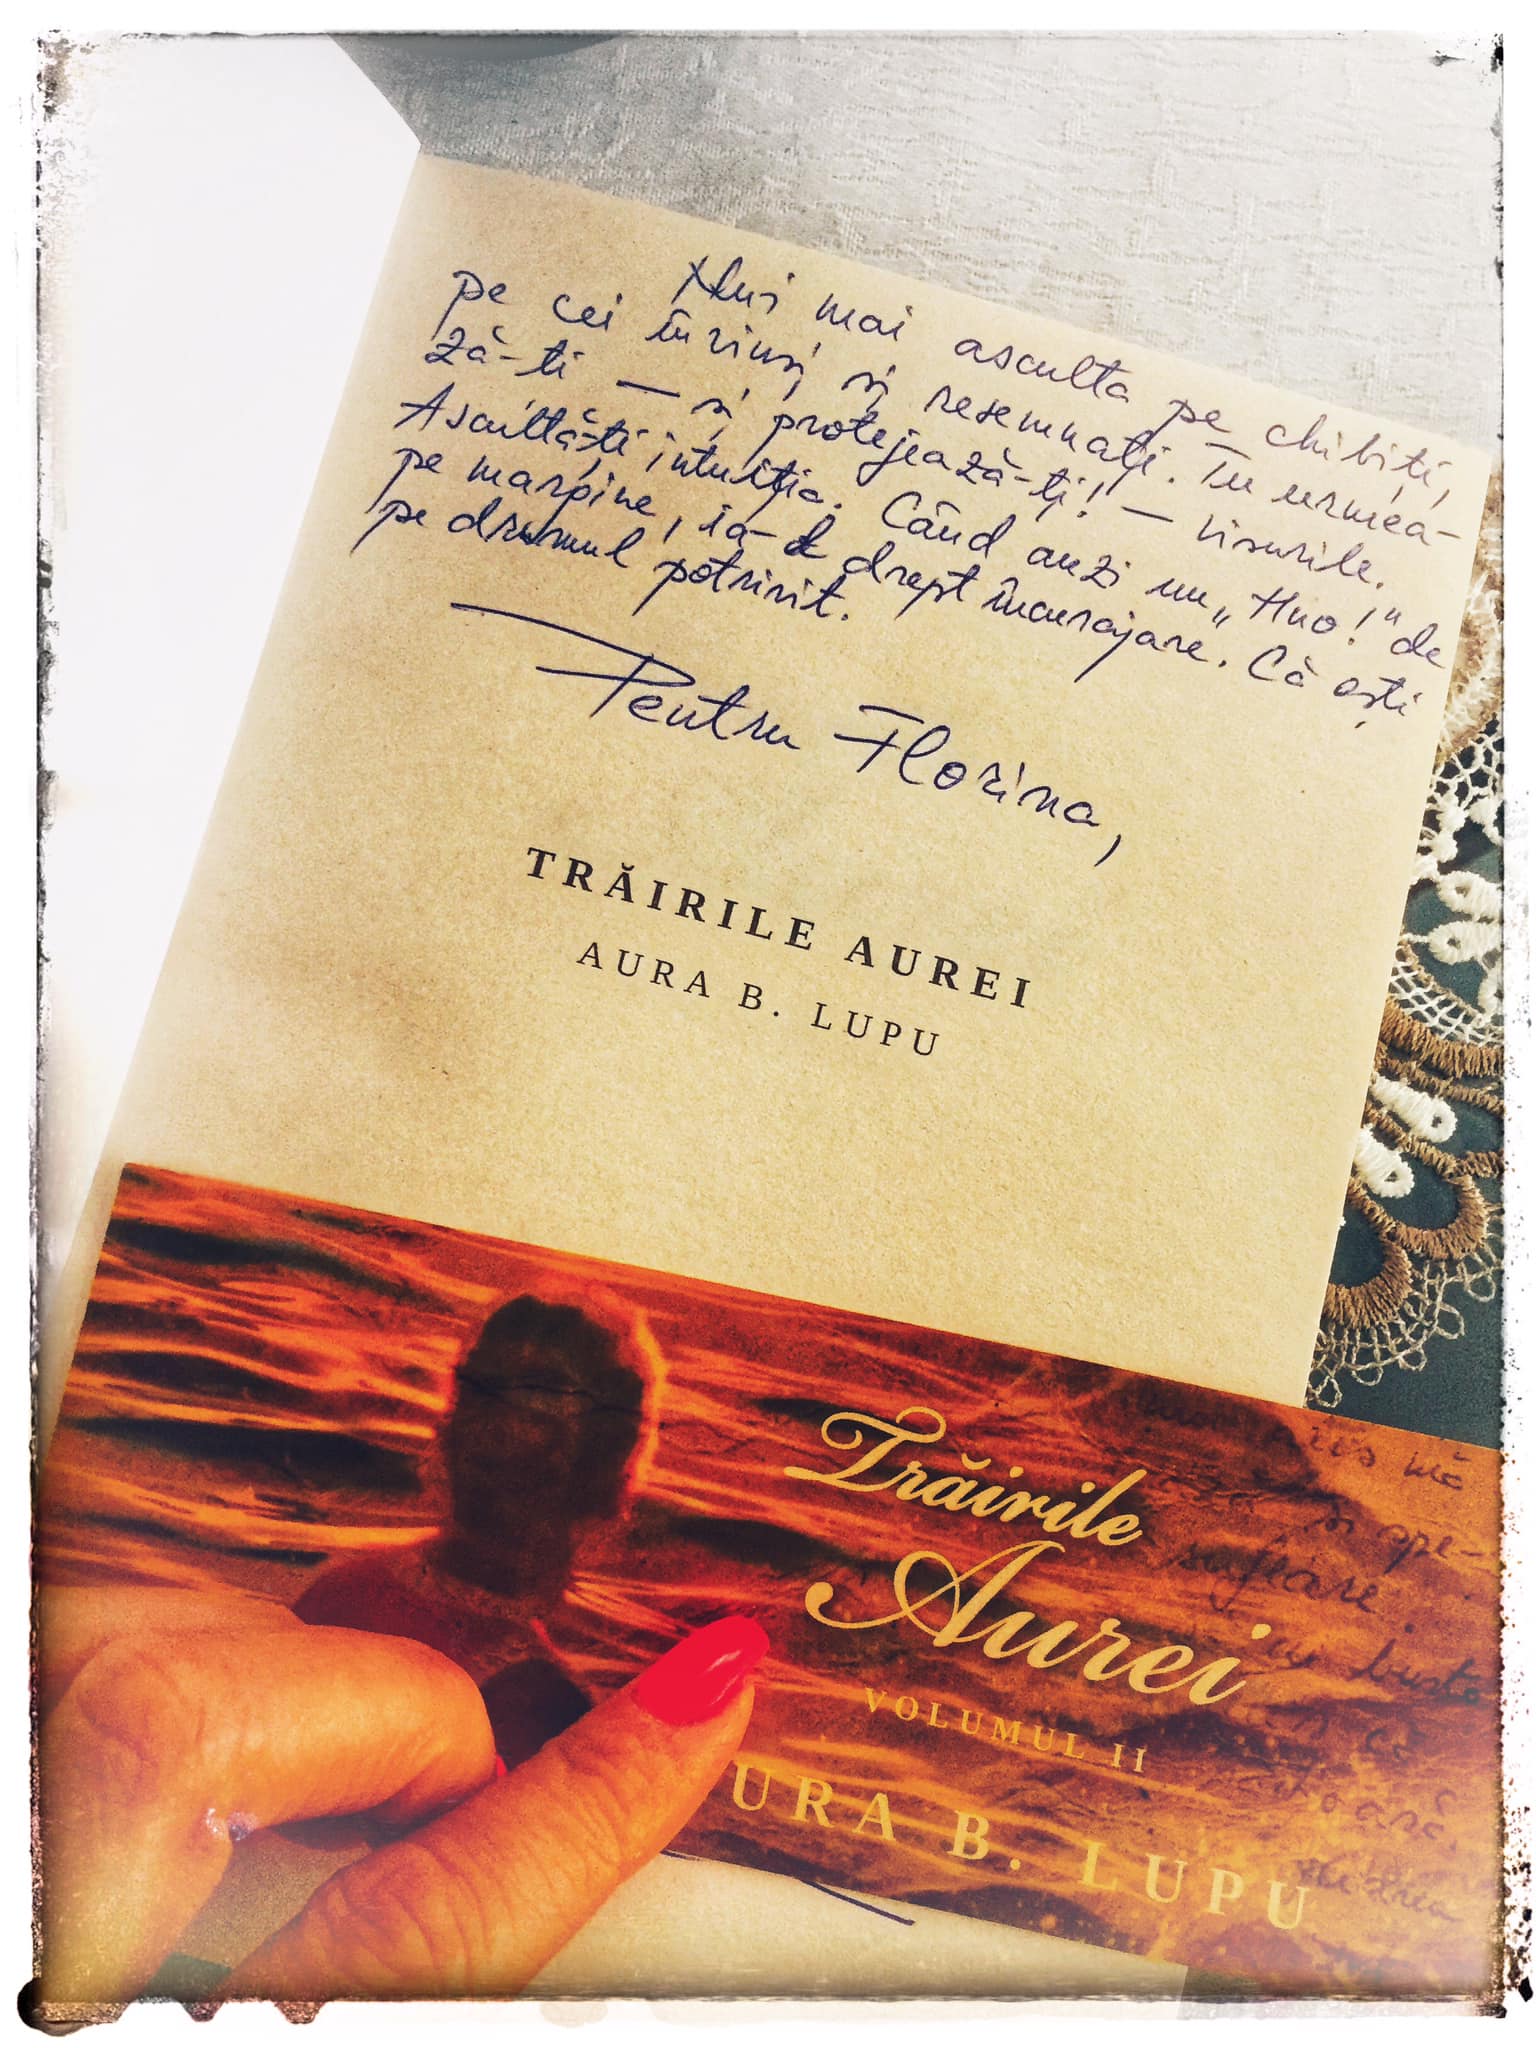 Nu-i mai asculta pe chibiți,
pe cei învinși și resemnați. Tu urmea-
ză-ți — și protejează-ți! — visurile.
Ascultă-ți intuiția. Când auzi un „Huo!" de
pe margine, ia-l drept încurajare. Că ești
pe drumul potrivit.
Pentru Florina,
TRĂIRILE AUREI
AURA B. LUPU
mă
suflare
Trăirile
Aurei
VOLUMUL II
URA B. LUPU